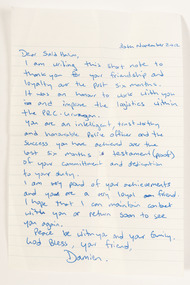 November 2012
Dear Said
I am writing this short note to
thank you for your friendship and
loyalty over the past six months.
It was an honour to work with you
to and improve the logistics within
the PRC-Uruzgan.
You are an intelligent, trustworthy
and honorable Police officer and the
success you have achieved over the
last six months is testament (proof)
of your commitment and dedication
to your duty.
I am very proud of your achievements
and you are a very loyal friend.
I hope that I can maintain contact
with you or return soon to see
you again.
Peace be with you and your family.
God Bless, your friend,
Damien.